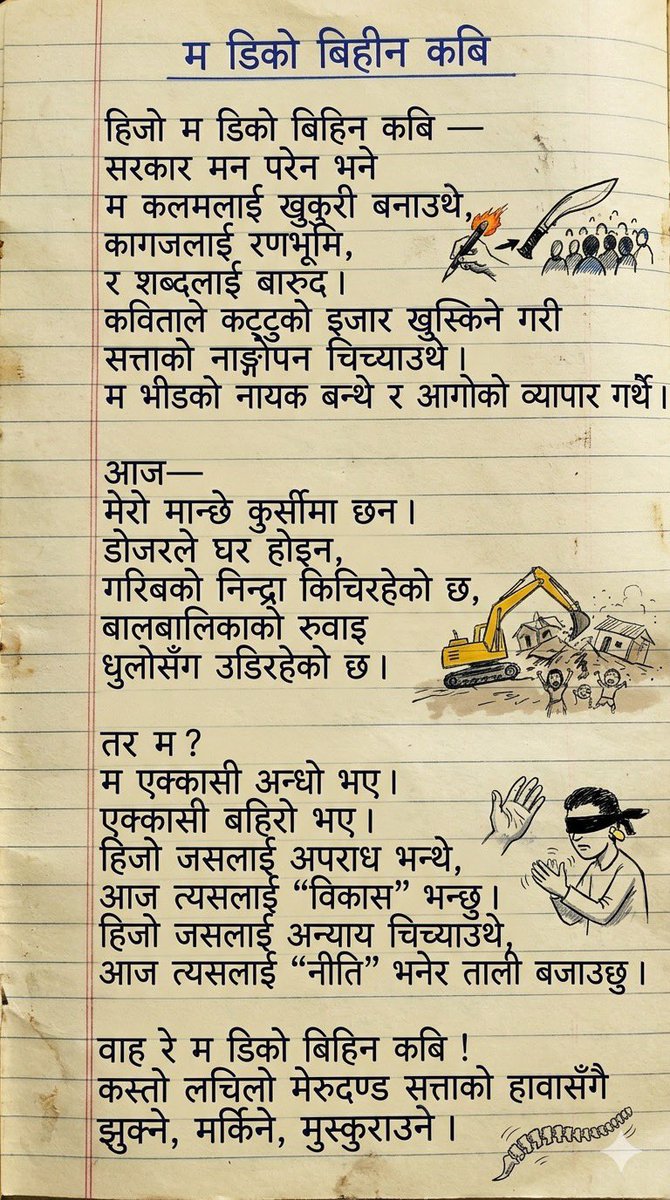 म डिको बिहीन कबि
हिजो म डिको बिहिन कबि —
सरकार मन परेन भने
म कलमलाई खुकुरी बनाउथे,
कागजलाई रणभूमि,
र शब्दलाई बारुद।
कविताले कट्टुको इजार खुस्किने गरी
सत्ताको नाङ्गोपन चिच्याउथे।
म भीडको नायक बन्थे र आगोको व्यापार गर्थे।
आज—
मेरो मान्छे कुर्सीमा छन।
डोजरले घर होइन,
गरिबको निन्द्रा किचिरहेको छ,
बालबालिकाको रुवाइ
धुलोसँग उडिरहेको छ।
तर म?
म एक्कासी अन्धो भए।
एक्कासी बहिरो भए।
हिजो जसलाई अपराध भन्थे,
आज त्यसलाई “विकास” भन्छु।
हिजो जसलाई अन्याय चिच्याउथे,
आज त्यसलाई “नीति” भनेर ताली बजाउछु।
वाह रे म डिको बिहिन कबि !
कस्तो लचिलो मेरुदण्ड सत्ताको हावासँगै
झुक्ने, मर्किने, मुस्कुराउने।